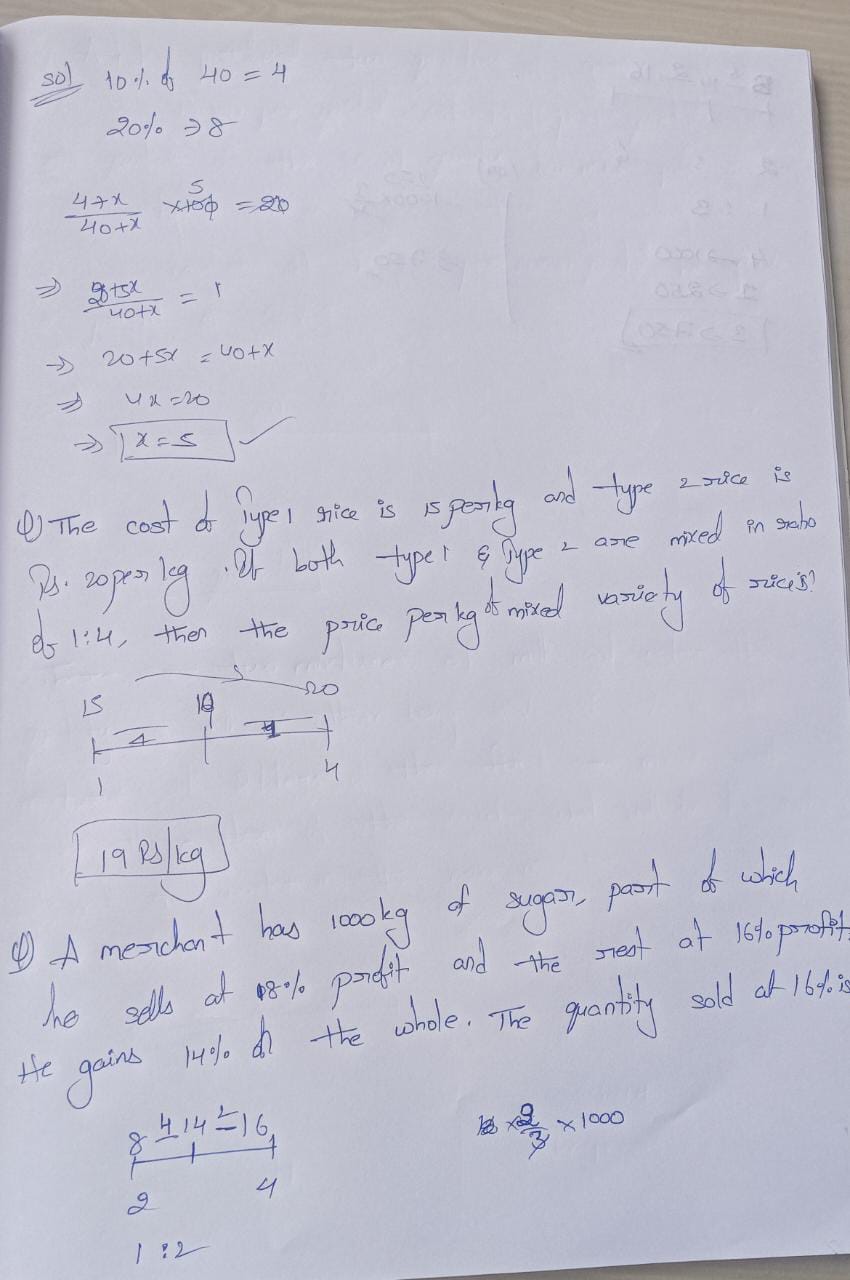 sol 10% of 40 = 4
20% => 8
4+x/40+x x100 5 = 20
=> 20+5x/40+x = 1
=> 20+5x = 40+x
=> 4x=20
=> x=5 ✓
Q) The cost of Type 1 rice is 15 per kg and type 2 rice is
Rs. 20 per kg. If both type 1 & Type 2 are mixed in ratio
of 1:4, then the price per kg of mixed variety of rice is?
5
15 19 20
4 1
1 4
19 Rs/kg
Q) A merchant has 1000kg of sugar, part of which
he sells at 8% profit and the rest at 16% profit.
He gains 14% on the whole. The quantity sold at 16% is
8 4 14 2 16
2/3 x 1000
2 4
1:2